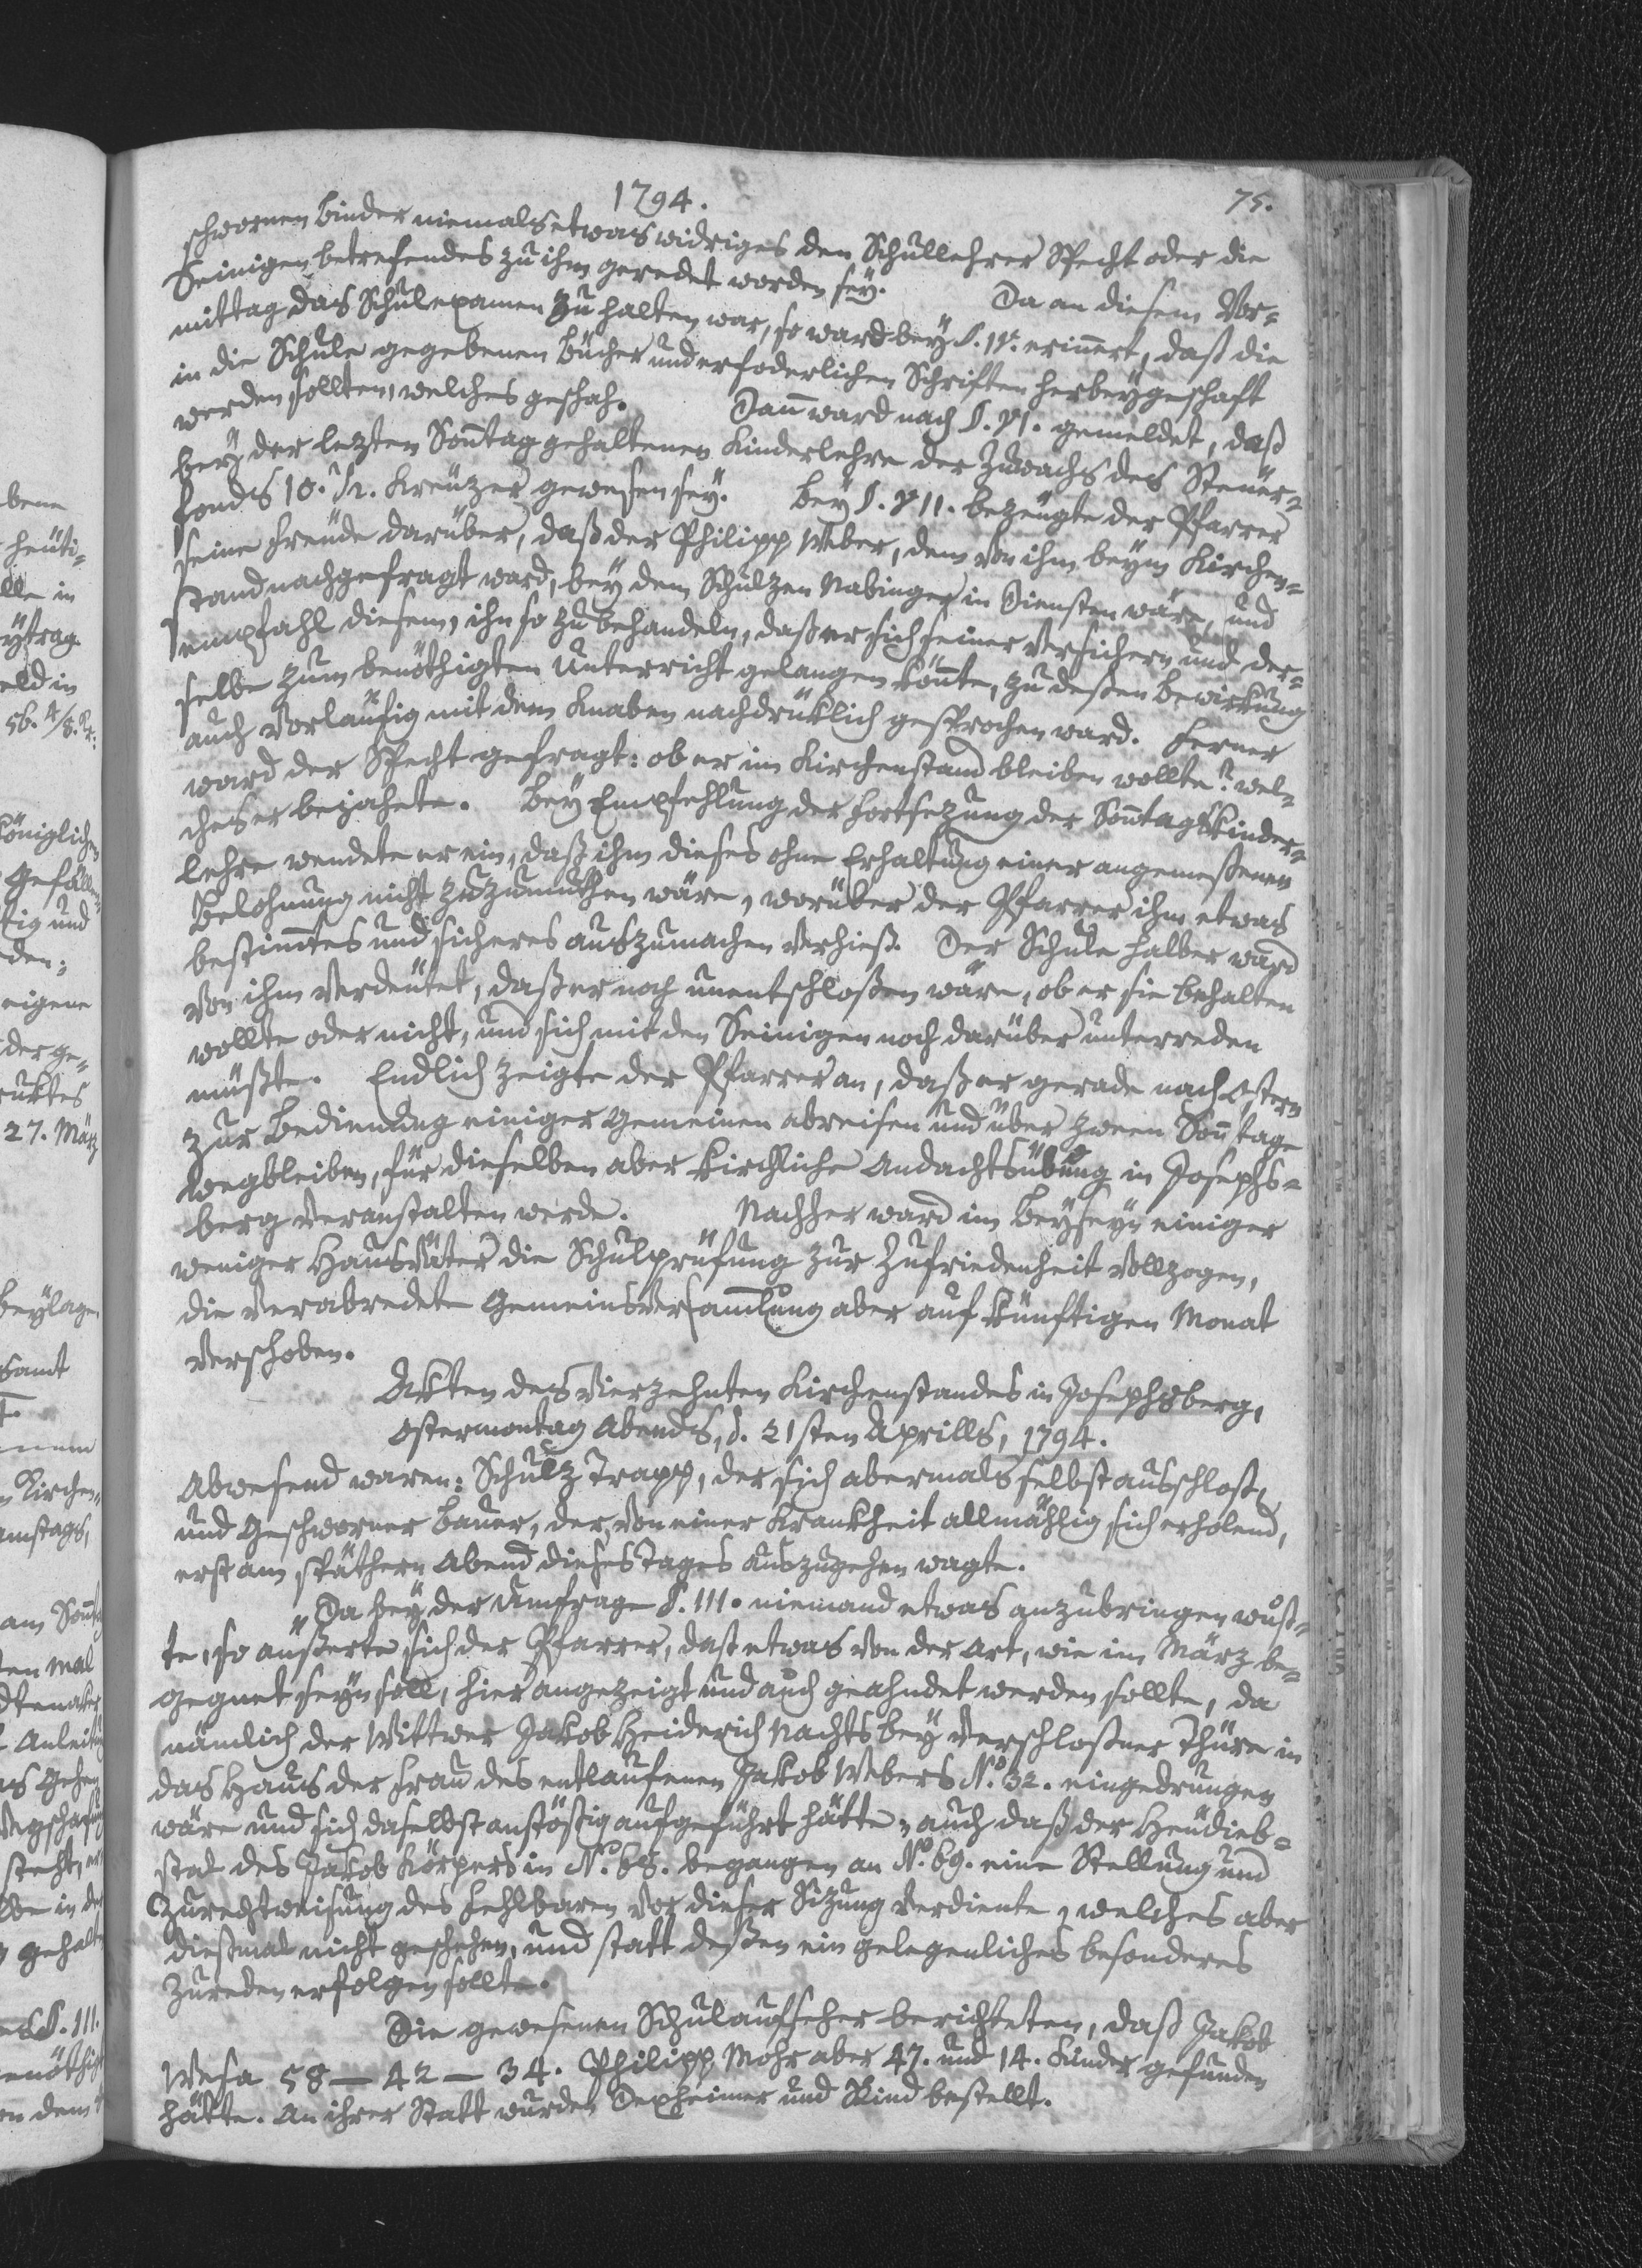 1794.
75.
schwornen Binder niemals etwas widriges den Schullehrer Specht oder die
Seinigen betrefendes zu ihm geredet worden sey. Da an diesem Vor=
mittag das Schulexamen zu halten war, so ward bey §. IV. erinnert, daß die
in die Schule gegebenen Bücher und erfoderlichen Schriften herbeygeschaft
werden sollten, welches geschah. Dann ward nach §. VI. gemeldet, daß
bey der lezten Sontag gehaltenen Kinderlehre der Zuwachs des Steuer=
fonds 10. Kreuzer gewesen sey. Bey §. VII. bezeugte der Pfarrer
seine Freude darüber, daß der Philipp Weber, dem von ihm beym Kirchen=
stand nachgefragt ward, bey dem Schulzen Nabinger in Diensten wäre, und
empfahl diesem, ihn so zu behandeln, daß er sich seiner versichern und der=
selbe zum benöthigten Unterricht gelangen könte, zu deßen Bewirkung
auch vorläufig mit dem Knaben nachdrüklich gesprochen ward. Ferner
ward der Specht gefragt: ob er im Kirchenstand bleiben wollte? wel=
ches er bejahete. Bey Empfehlung der Fortsezung der Sontagskinder=
lehre wendete er ein, daß ihm dieses ohne Erhaltung einer angemeßenen
Belohnung nicht zuzumuthen wäre, worüber der Pfarrer ihm etwas
bestimtes und sicheres auszumachen verhieß. Der Schule halber ward
von ihm verdeutet, daß er noch unentschloßen wäre, ob er sie behalten
wollte oder nicht, und sich mit den Seinigen noch darüber unterreden
müßte. Endlich zeigte der Pfarrer an, daß er gerade nach Ostern
zur Bedienung einiger Gemeinen abreisen und über zween Sontage
wegbleiben, für dieselben aber kirchliche Andachtsübung in Josephs=
berg veranstalten werde. Nachher ward im Beyseyn einiger
weniger Hausväter die Schulprüfung zur Zufriedenheit vollzogen,
die verabredete Gemeinsversamlung aber auf künftigen Monat
verschoben.
Akten des vierzehnten Kirchenstandes in Josephsberg,
Ostermontag Abends, d. 21sten Aprills, 1794.
Abwesend waren: Schulz Trapp, der sich abermals selbst ausschloß,
und Geschworner Bauer, der, von einer Krankheit allmählig sich erholend,
erst am späthern Abend dieses Tages auszugehen wagte.
Da bey der Umfrage §. III. niemand etwas anzubringen wuß=
te, so äußerte sich der Pfarrer, daß etwas von der Art, wie im März be=
gegnet seyn soll, hier angezeigt und auch geahndet werden sollte, da
nämlich der Wittwer Jakob Heiderich Nachts bey verschloßner Thüre in
das Haus der Frau des entlaufenen Jakob Webers N.o 32. eingedrungen
wäre und sich daselbst anstößig aufgeführt hätte, auch daß der Heudieb=
stal des Jakob Körpers in N.o 68. begangen an N.o 69. eine Stellung und
Zurechtweisung des Fehlbaren vor dieser Sizung verdiente, welches aber
dießmal nicht geschehen, und statt deßen ein gelegenliches besonderes
Zureden erfolgen sollte.
Die gewesenen Schulaufseher berichteten, daß Jakob
Wesa 58 — 42 — 34. Philipp Mohr aber 47. und 14. Kinder gefunden
hätte. An ihrer Statt wurden Dexheimer und Rind bestellt.